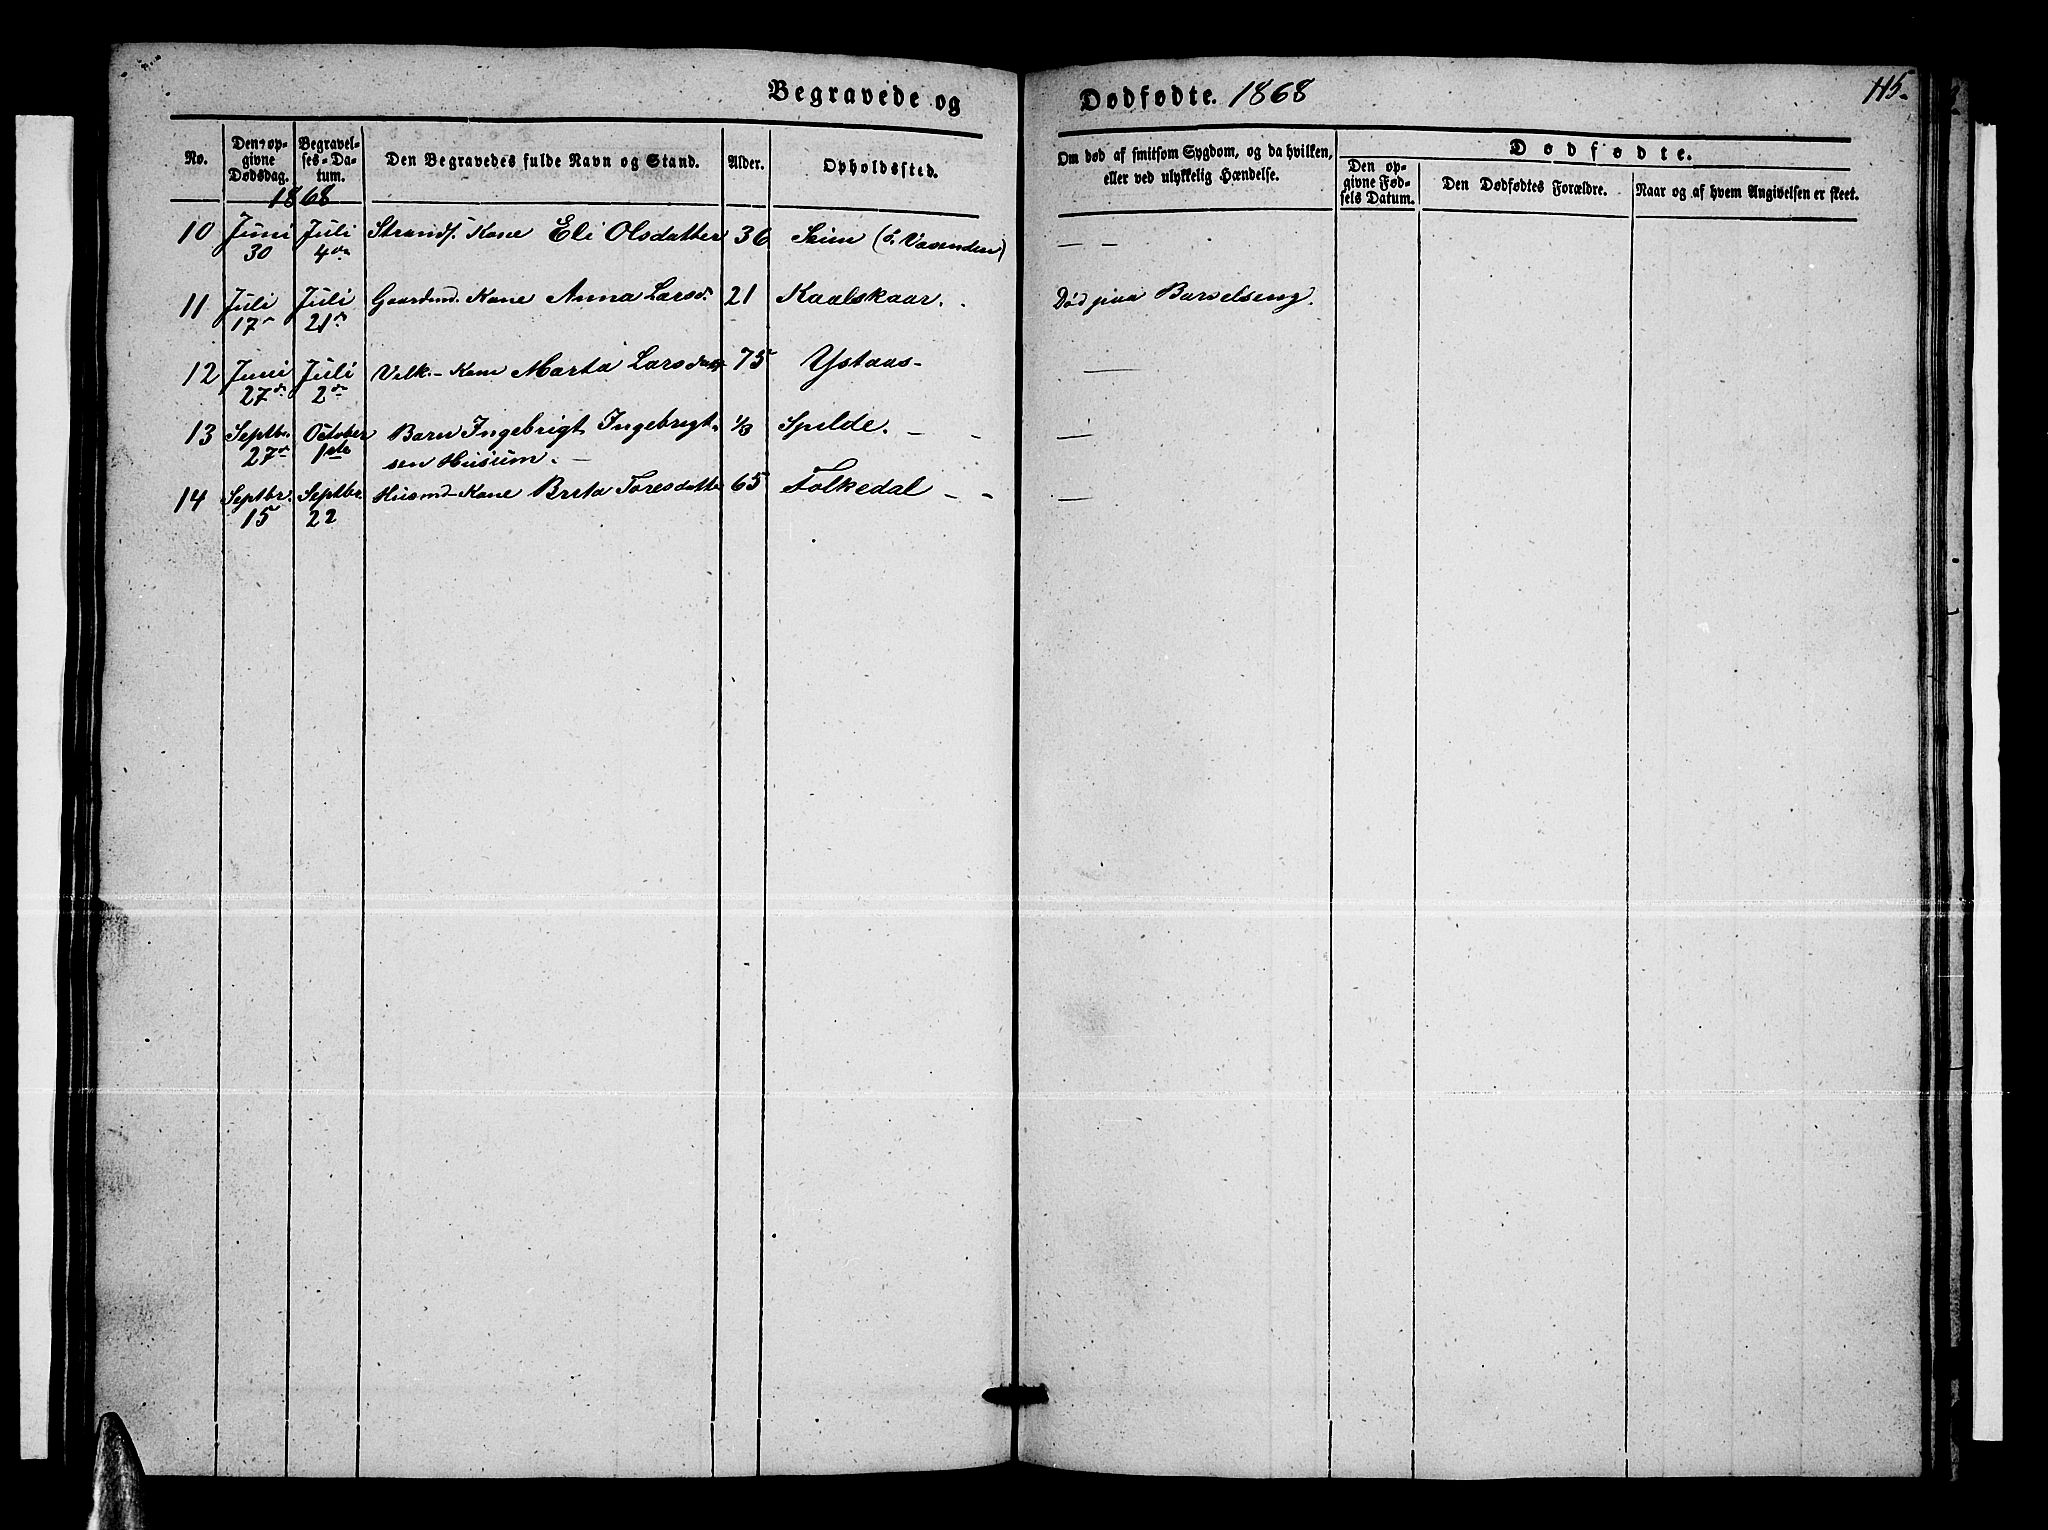 Begravede og Dødfødte. 1868 115.
No.
Den op-
givne
Dødsdag.
Begravel-
ses-Da-
tum.
Den Begravedes fulde Navn og Stand.
Alder.
Opholdssted.
Om død af smitsom Sygdom, og da hvilken,
eller ved ulykkelig Hændelse.
Dødfødte.
Den op-
givne Fød-
sels Datum.
Den Dødfødtes Forældre.
Naar og af hvem Angivelsen er skeet.
1868
10 Juni Juli Strands. Kone Eli Olsdatter 36 Seim — —
30 4de
11 Juli Juli Gaardmd. Kone Anna Larsd. 21 Kaalskaar. Død paa Barselseng.
17de 21de
12 Juni Juli Vilk.- Kone Marta Larsdatter 75 Ystaas- —
27de 2de
13 Septbr. October Barn Ingebrigt Ingebrigt- 1/3 Spilde. - - —
27de 1ste sen Husum. —
14 Septbr. Septbr. Husmd-Kone Brita Toresdatter 65 Folkedal - - —
15 22